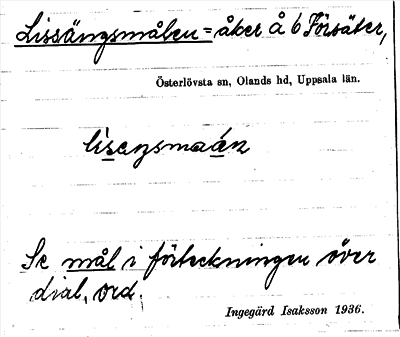 Lissängsmålen = åker å 6 Försäter,
Österlövsta sn, Olands hd, Uppsala län.
lisengsmaén
Se mål i förteckningen över
dial. ord.
Ingegärd Isaksson 1936.